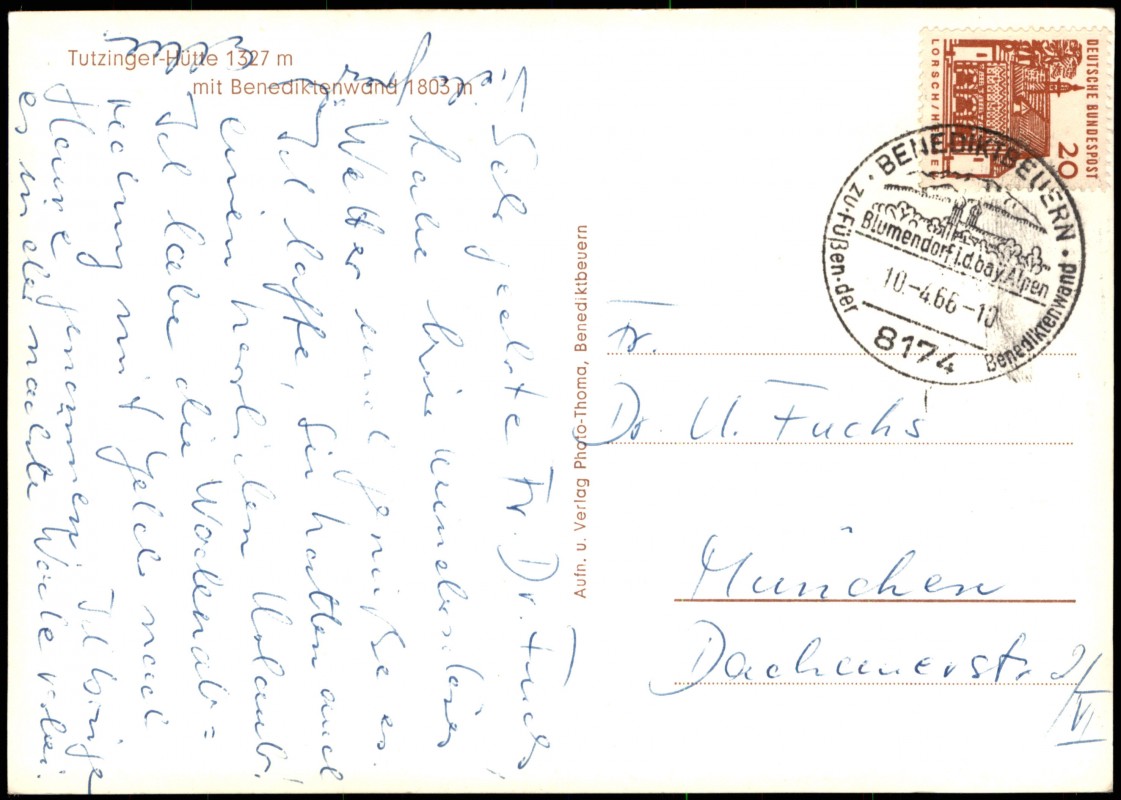 Tutzinger-Hütte 1327 m
mit Benediktenwand 1803 m
Sehr geehrte Fr. Dr. Fuchs,
habe hier wunderbares
Wetter und genieße es.
Ich hoffe, Sie hatten auch
einen herrlichen Urlaub!
Ich habe die Wochenab=
rechnung mit Geld nach
Hause genommen. Ich bringe
es in der nächste Woche vorbei.
Aufn. u. Verlag Photo-Thoma, Benediktbeuern
DEUTSCHE BUNDESPOST
20
LORSCH/H
BENEDIKTBEUERN
Blumendorf i.d.bay.Alpen
10.-4.66-10
8174
zu·Füßen·der Benediktenwand
Fr.
Dr. U. Fuchs
München
Dachauerstr. 2/VI